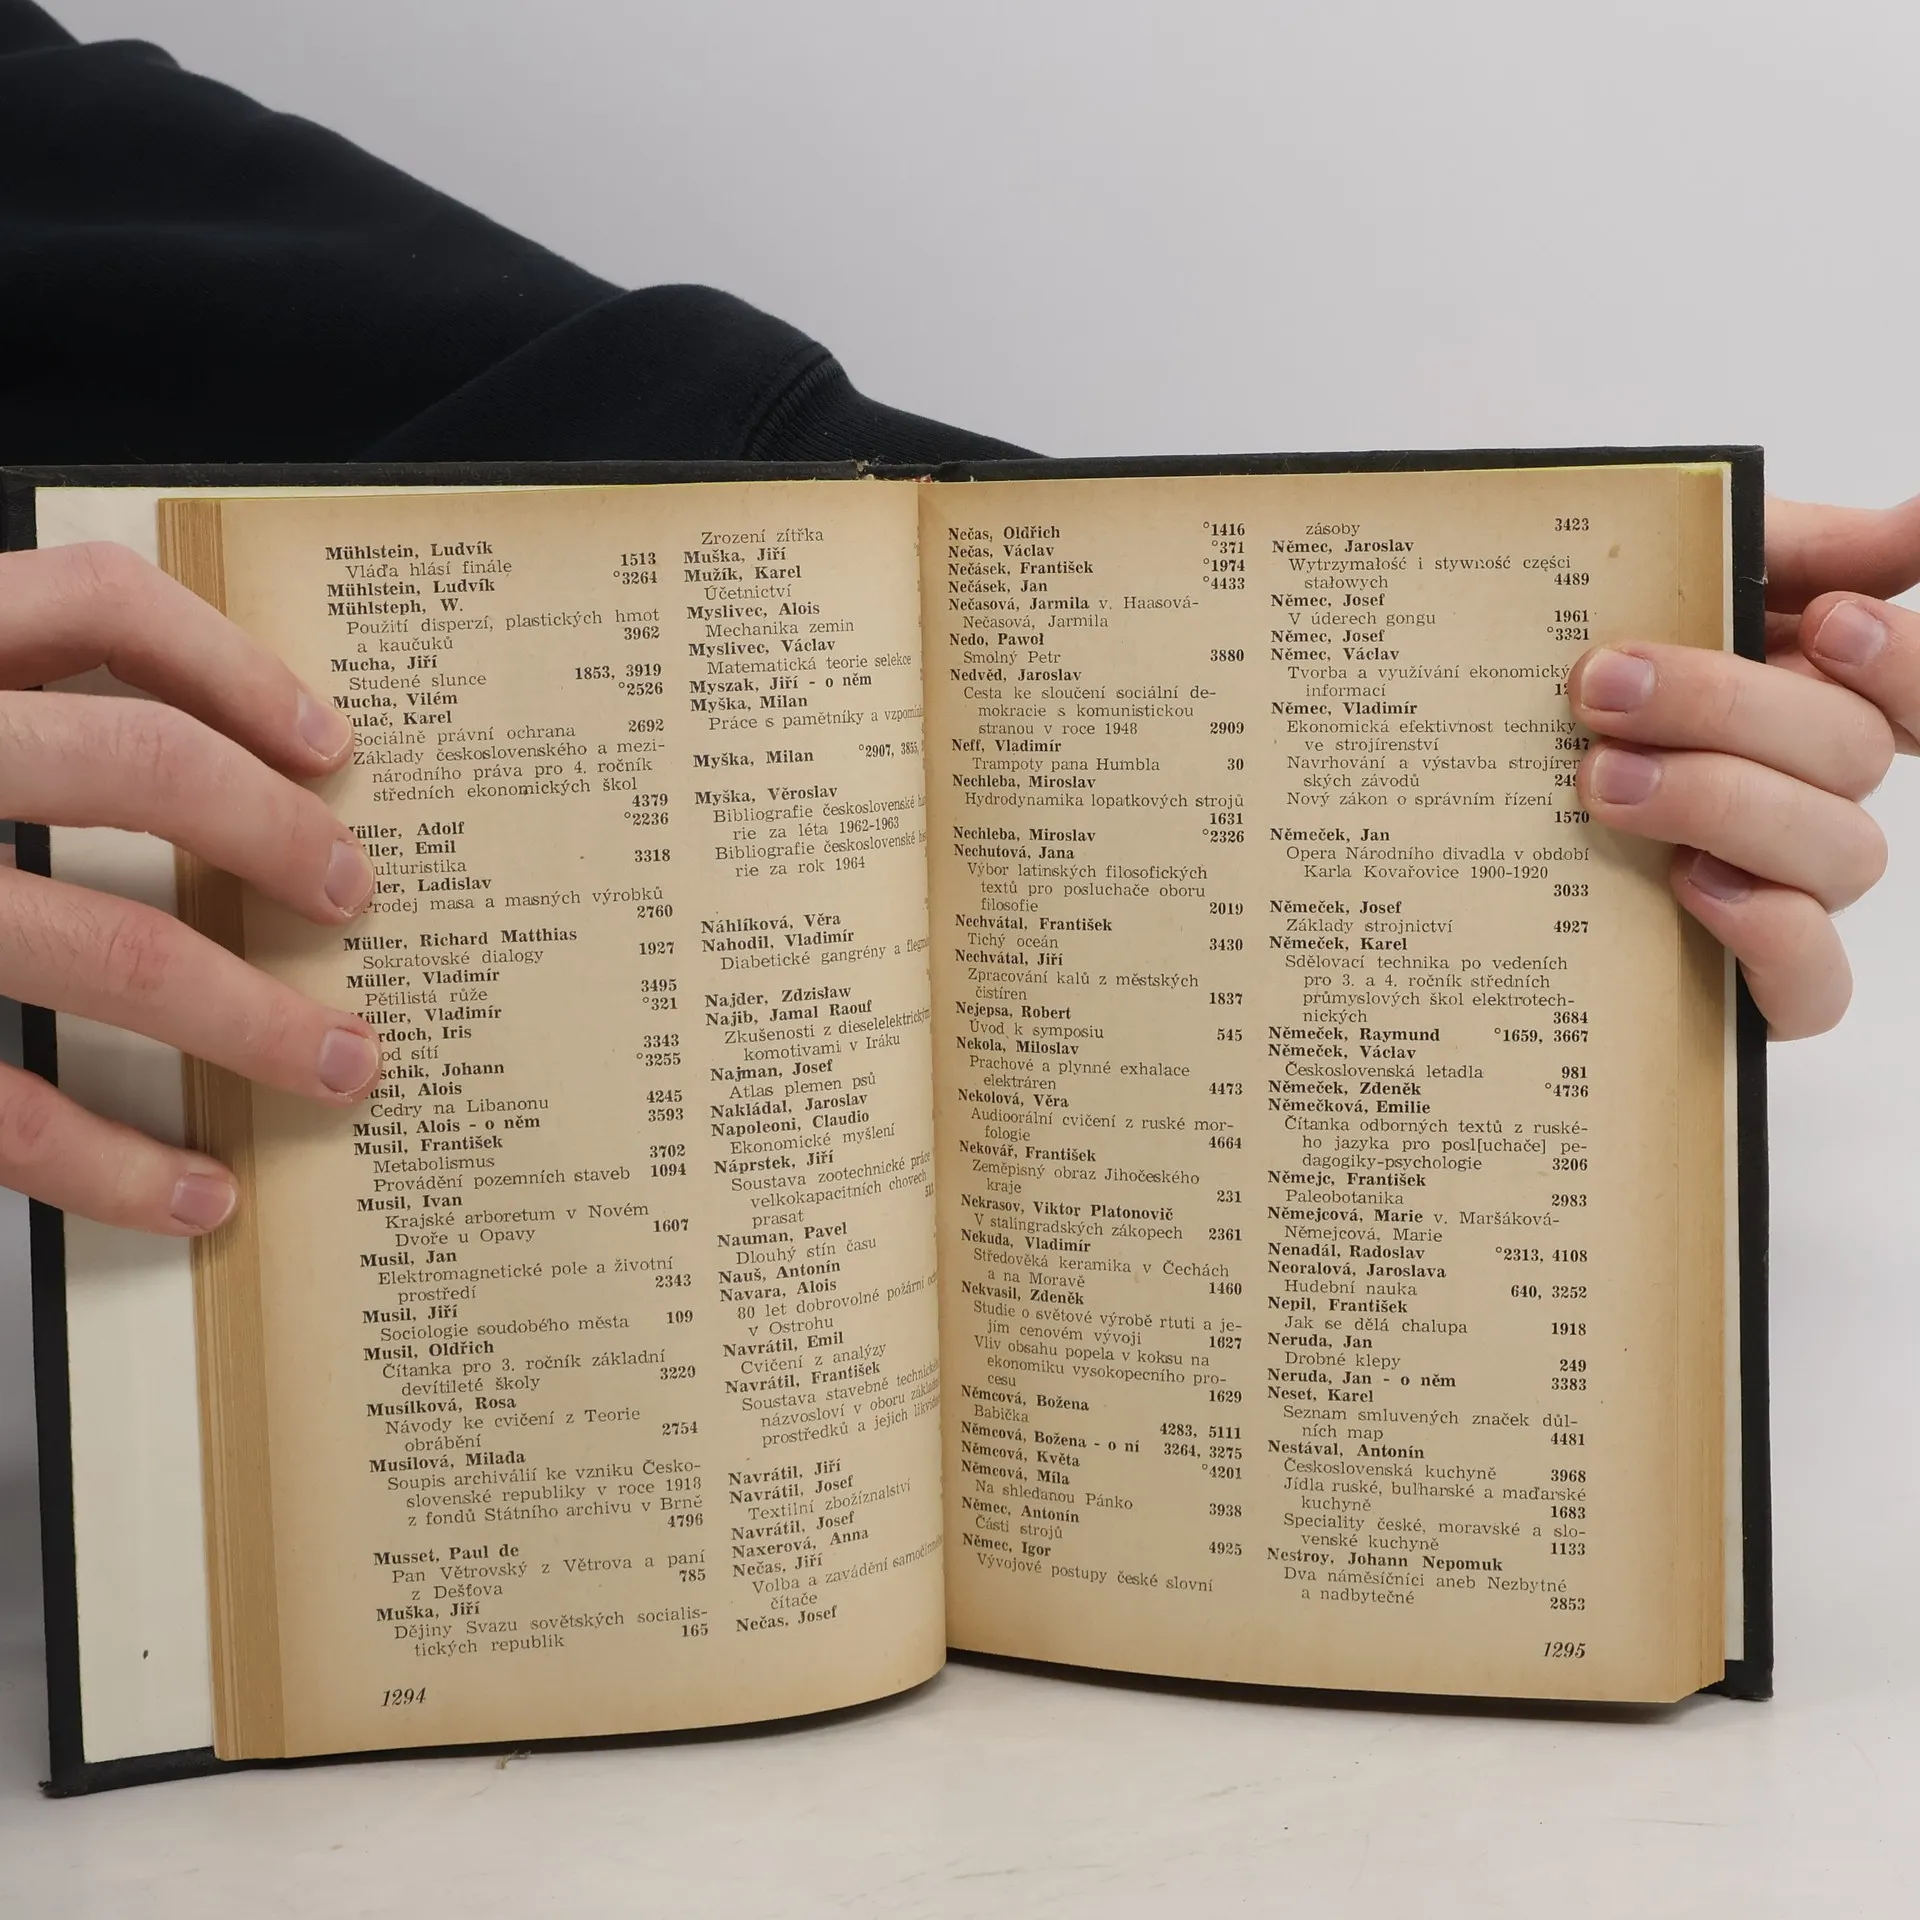 Mühlstein, Ludvík
Vláďa hlásí finále 1513
Mühlstein, Ludvík °3264
Mühlsteph, W.
Použití disperzí, plastických hmot
a kaučuků 3962
Mucha, Jiří
Studené slunce 1853, 3919
Mucha, Vilém °2526
ulač, Karel
Sociálně právní ochrana 2692
Základy československého a mezi-
národního práva pro 4. ročník
středních ekonomických škol
4379
üller, Adolf °2236
ller, Emil
ulturistika 3318
ler, Ladislav
Prodej masa a masných výrobků
2760
Müller, Richard Matthias
Sokratovské dialogy 1927
Müller, Vladimír
Pětilistá růže 3495
üller, Vladimír °321
rdoch, Iris
od sítí 3343
schik, Johann °3255
usil, Alois
Cedry na Libanonu 4245
Musil, Alois - o něm 3593
Musil, František
Metabolismus 3702
Provádění pozemních staveb 1094
Musil, Ivan
Krajské arboretum v Novém
Dvoře u Opavy 1607
Musil, Jan
Elektromagnetické pole a životní
prostředí 2343
Musil, Jiří
Sociologie soudobého města 109
Musil, Oldřich
Čítanka pro 3. ročník základní
devítileté školy 3220
Musílková, Rosa
Návody ke cvičení z Teorie
obrábění 2754
Musilová, Milada
Soupis archiválií ke vzniku Česko-
slovenské republiky v roce 1918
z fondů Státního archivu v Brně
4796
Musset, Paul de
Pan Větrovský z Větrova a paní
z Dešťova 785
Muška, Jiří
Dějiny Svazu sovětských socialis-
tických republik 165
1294
Zrození zítřka
Muška, Jiří
Mužík, Karel
Účetnictví
Myslivec, Alois
Mechanika zemin
Myslivec, Václav
Matematická teorie selekce
Myszak, Jiří - o něm
Myška, Milan
Práce s pamětníky a
Myška, Milan °2907, 3855,
Myška, Věroslav
Bibliografie československé
rie za léta 1962-1963
Bibliografie československé
rie za rok 1964
Náhlíková, Věra
Nahodil, Vladimír
Diabetické gangrény a
Najder, Zdzisław
Najib, Jamal Raouf
Zkušenosti z
komotivami v Iráku
Najman, Josef
Atlas plemen psů
Nakládal, Jaroslav
Napoleoni, Claudio
Ekonomické myšlení
Náprstek, Jiří
Soustava zootechnické práce
velkokapacitních chovech
prasat
Nauman, Pavel
Dlouhý stín času
Nauš, Antonín
Navara, Alois
80 let dobrovolné požární
v Ostrohu
Navrátil, Emil
Cvičení z analýzy
Navrátil, František
Soustava stavebně
názvosloví v oboru
prostředků a jejich
Navrátil, Jiří
Navrátil, Josef
Textilní zbožíznalství
Navrátil, Josef
Naxerová, Anna
Nečas, Jiří
Volba a zavádění
čítače
Nečas, Josef
Nečas, Oldřich °1416
Nečas, Václav °371
Nečásek, František °1974
Nečásek, Jan °4433
Nečasová, Jarmila v. Haasová-
Nečasová, Jarmila
Nedo, Pawoł
Smolný Petr 3880
Nedvěd, Jaroslav
Cesta ke sloučení sociální de-
mokracie s komunistickou
stranou v roce 1948 2909
Neff, Vladimír
Trampoty pana Humbla 30
Nechleba, Miroslav
Hydrodynamika lopatkových strojů
1631
Nechleba, Miroslav °2326
Nechutová, Jana
Výbor latinských filosofických
textů pro posluchače oboru
filosofie 2019
Nechvátal, František
Tichý oceán 3430
Nechvátal, Jiří
Zpracování kalů z městských
čistíren 1837
Nejepsa, Robert
Úvod k symposiu 545
Nekola, Miloslav
Prachové a plynné exhalace
elektráren 4473
Nekolová, Věra
Audioorální cvičení z ruské mor-
fologie 4664
Nekovář, František
Zeměpisný obraz Jihočeského
kraje 231
Nekrasov, Viktor Platonovič
V stalingradských zákopech 2361
Nekuda, Vladimír
Středověká keramika v Čechách
a na Moravě 1460
Nekvasil, Zdeněk
Studie o světové výrobě rtuti a je-
jím cenovém vývoji 1627
Vliv obsahu popela v koksu na
ekonomiku vysokopecního pro-
cesu 1629
Němcová, Božena
Babička 4283, 5111
Němcová, Božena - o ní 3264, 3275
Němcová, Květa °4201
Němcová, Míla
Na shledanou Pánko 3938
Němec, Antonín
Části strojů 4925
Němec, Igor
Vývojové postupy české slovní
zásoby 3423
Němec, Jaroslav
Wytrzymałość i stywność części
stałowych 4489
Němec, Josef
V úderech gongu 1961
Němec, Josef °3321
Němec, Václav
Tvorba a využívání
informací
Němec, Vladimír
Ekonomická efektivnost techniky
ve strojírenství 3647
Navrhování a výstavba strojíren
ských závodů
Nový zákon o správním řízení
1570
Němeček, Jan
Opera Národního divadla v období
Karla Kovařovice 1900-1920
3033
Němeček, Josef
Základy strojnictví 4927
Němeček, Karel
Sdělovací technika po vedeních
pro 3. a 4. ročník středních
průmyslových škol elektrotech-
nických 3684
Němeček, Raymund °1659, 3667
Němeček, Václav
Československá letadla 981
Němeček, Zdeněk °4736
Němečková, Emilie
Čítanka odborných textů z ruské-
ho jazyka pro posl[uchače] pe-
dagogiky-psychologie 3206
Němejc, František
Paleobotanika 2983
Němejcová, Marie v. Maršáková-
Němejcová, Marie
Nenadál, Radoslav °2313, 4108
Neoralová, Jaroslava
Hudební nauka 640, 3252
Nepil, František
Jak se dělá chalupa 1918
Neruda, Jan
Drobné klepy 249
Neruda, Jan - o něm 3383
Neset, Karel
Seznam smluvených značek důl-
ních map 4481
Nestával, Antonín
Československá kuchyně 3968
Jídla ruské, bulharské a maďarské
kuchyně 1683
Speciality české, moravské a slo-
venské kuchyně 1133
Nestroy, Johann Nepomuk
Dva náměsíčníci aneb Nezbytné
a nadbytečné 2853
1295